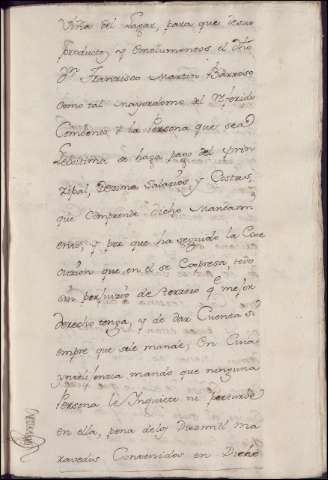 Viña del Lagar, para que de sus
productos, y emolumentos el dho
Dn Francisco Martin Barroso
como tal mayordomo del Referido
Combento, o la Persona que sea
Lexitima se haga pago del prin
zipal, Dezima Salarios y Costas,
que Comprende dicho Mandami
ento, y por que ha seguido la Exe
cuzion que en el se Expresa, todo
sin perjuizio de terzero qe mejor
derecho tenga, y de dar Cuenta si
empre que se le mande, En Cuia
intelixenzia mando que ninguna
Persona le Inquiete ni perturbe
en ella, pena de los Diezmil ma
ravedis Contenidos en Dicho